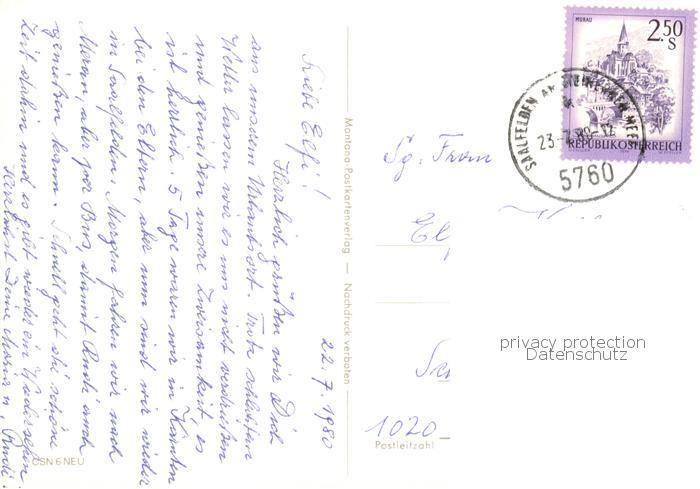 22.7.1980
Liebe Elfi!
Herzlich grüßen wir Dich
aus unserem Urlaubsort. Trotz schlechtem
Wetter lassen wir es uns nicht verdrießen
und genießen unsere Zweisamkeit, es
ist herrlich. 5 Tage waren wir in Kärnten
bei den Eltern, aber nun sind wir wieder
in Saalfelden. Morgen fahren wir nach
Meran, aber per Bus, damit Rudi auch
genießen kann. Schnell geht die schöne
Zeit dahin und es gibt wieder ein Wiedersehen
Herzlichst Deine u. Rudi.
CSN 6 NEU
Montana-Postkartenverlag — Nachdruck verboten
MURAU
2.50
S
REPUBLIK ÖSTERREICH
SAALFELDEN AM STEINERNEN MEER
5760
Sg. Frau
privacy protection
Datenschutz
1020
Postleitzahl